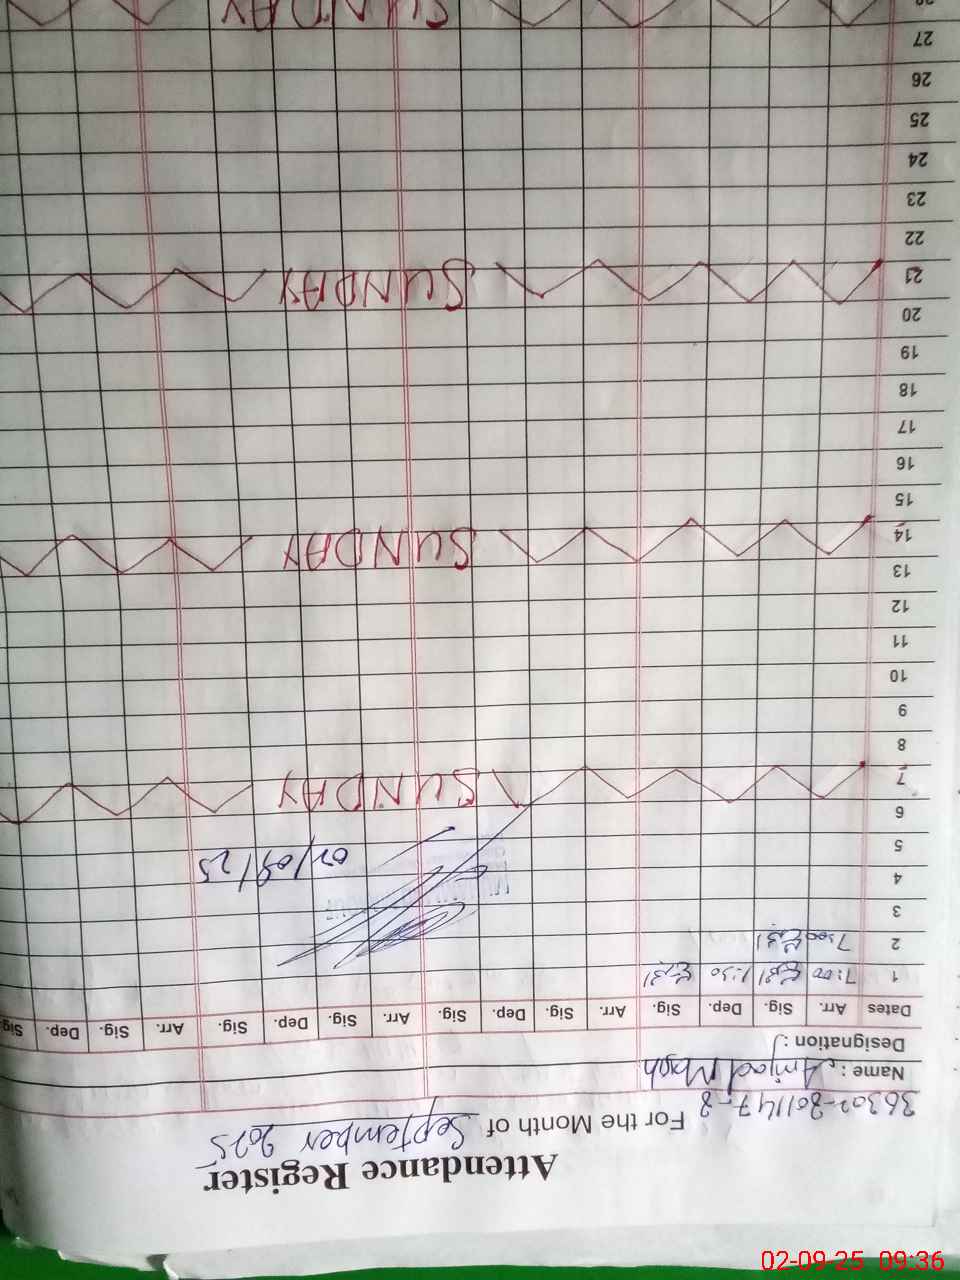 Attendance Register
For the Month of September 2025
36302-8011147-3
Name : Amjad Masih
Designation :
Dates Arr. Sig. Dep. Sig. Arr. Sig. Dep. Sig. Arr. Sig. Dep. Sig. Arr. Sig. Dep. Sig.
1 7:00 1:30
2 7:00
3
4
5 02/09/25
6
7 SUNDAY
8
9
10
11
12
13
14 SUNDAY
15
16
17
18
19
20
21 SUNDAY
22
23
24
25
26
27
28 SUNDAY
02-09-25 09:36